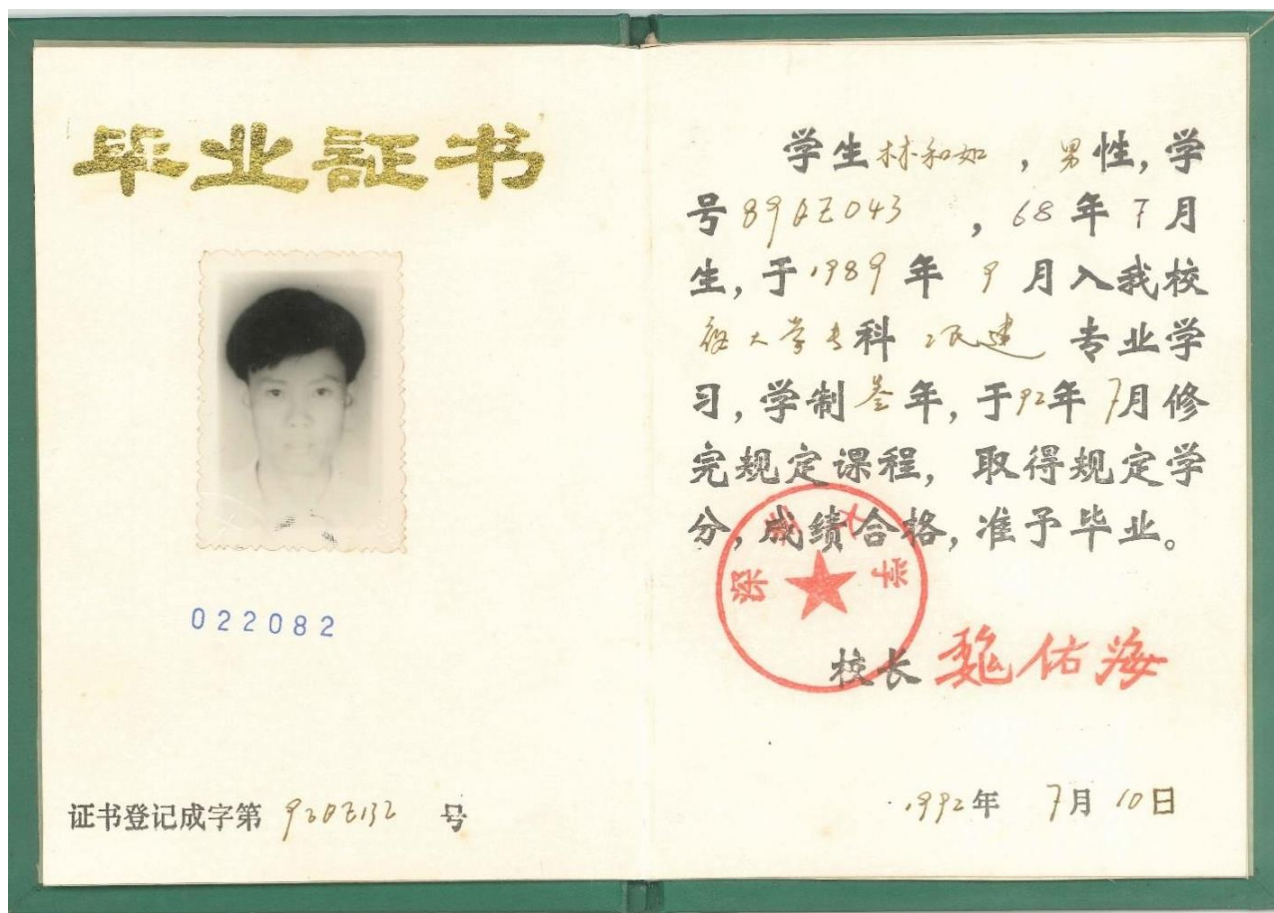 毕业证书
022082
证书登记成字第 920Z132 号
学生林和如，男性，学
号890Z043，68年7月
生，于1989年 9月入我校
大学专科 专业学
习，学制叁年，于92年7月修
完规定课程，取得规定学
分，成绩合格，准予毕业。
深圳大学
校长 魏佑海
1992年 7月10日